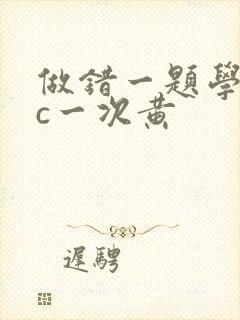 做錯一題學
c一次黄
遲騁